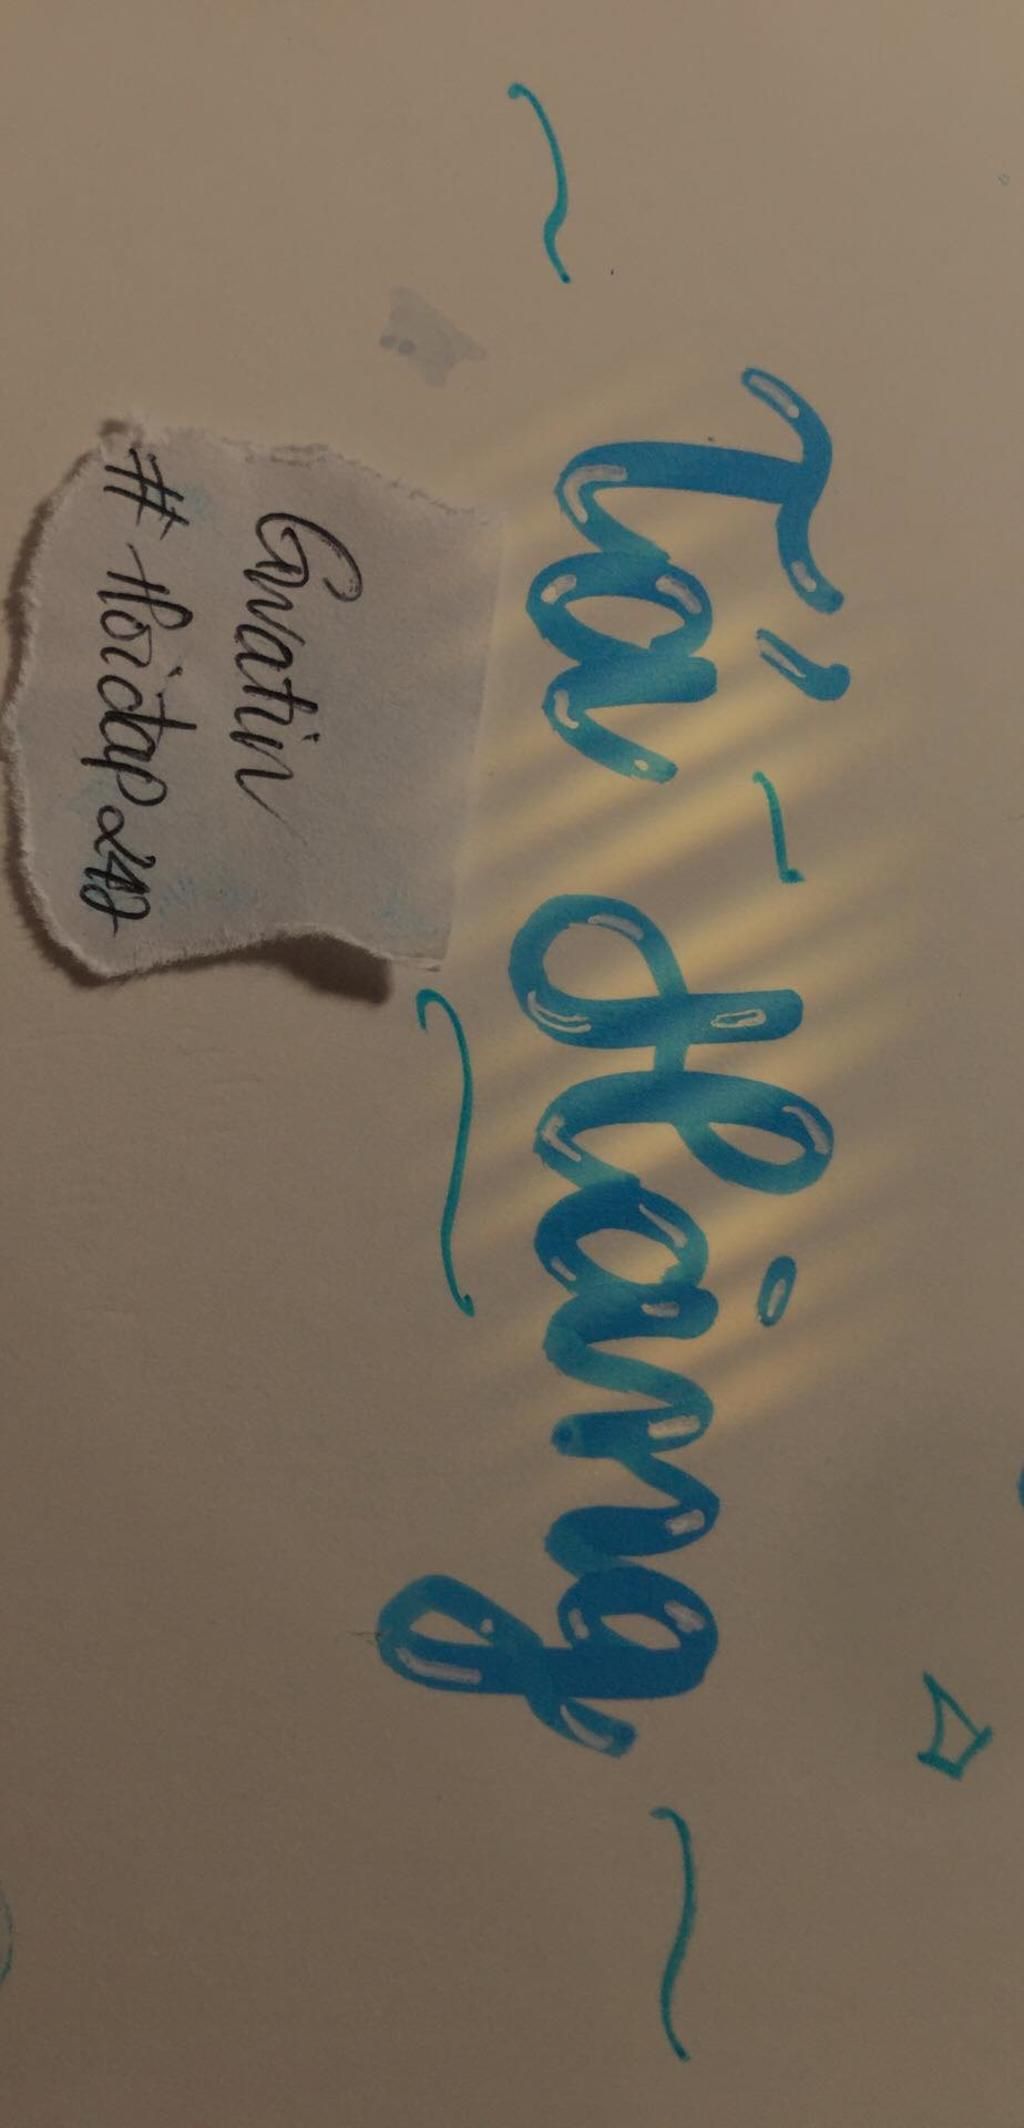 Tá Hàng
Gvatin
#Hoidap247